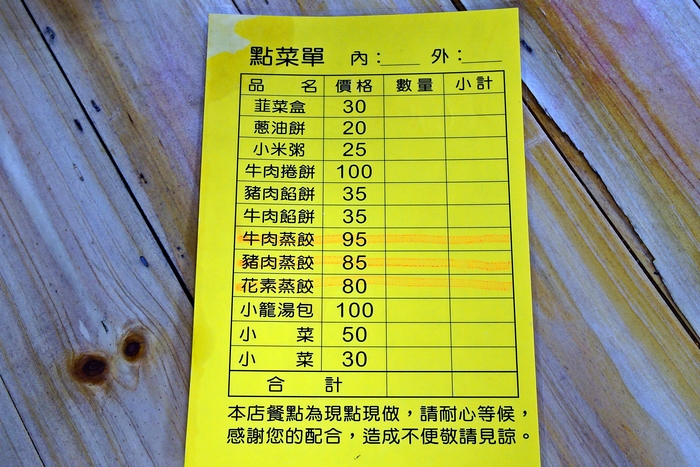 點菜單 內：____ 外：____
品 名 價格 數量 小計
韮菜盒 30
蔥油餅 20
小米粥 25
牛肉捲餅 100
豬肉餡餅 35
牛肉餡餅 35
牛肉蒸餃 95
豬肉蒸餃 85
花素蒸餃 80
小籠湯包 100
小 菜 50
小 菜 30
合 計
本店餐點為現點現做，請耐心等候，
感謝您的配合，造成不便敬請見諒。